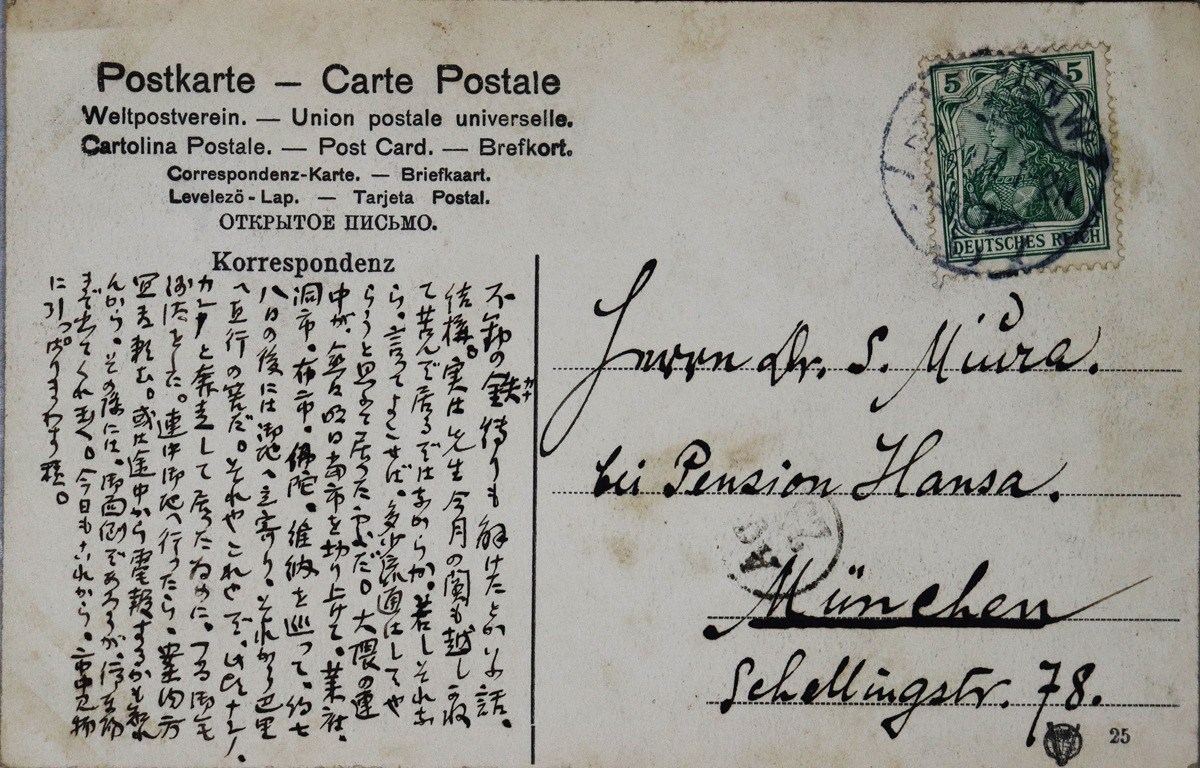 Postkarte – Carte Postale
Weltpostverein. — Union postale universelle.
Cartolina Postale. — Post Card. — Brefkort.
Correspondenz-Karte. — Briefkaart.
Levelező-Lap. — Tarjeta Postal.
ОТКРЫТОЕ ПИСЬМО.
Korrespondenz
5 5
DEUTSCHES REICH
待りも解けたとかいふ話。
結構。実は先生今月の関も越し
て苦んで居るではあるか。若しそれ
ら。言つてよこせば。多少流通はしてや
らうと思ふて居つた
中が。当市を切り上げて。
洞市。布市。佛陀。維納を巡つて。約七
八日の後には御地へ立寄り。それから巴里
へ直行の筈だ。それやこれやで。
と奔走して居つたために。つる御
した。連中御地へ行つたら。案内方
宜敷頼む。或は途中から電報するかも知れ
んから。その後には。御面倒であらうが。停車場
まで出てくれ玉へ。今日もこれから。見物
に引つぱりまわす積。
Herrn Dr. S. Miura.
bei Pension Hansa.
München
Schellingstr. 78.
25